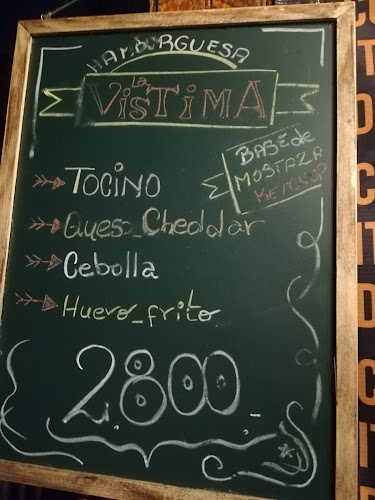 HAMBURGUESA
la
VISTIMA
BASE de
MOSTAZA
KETCHUP
TOCINO
Queso_Cheddar
Cebolla
Huevo_frito
2.800.-